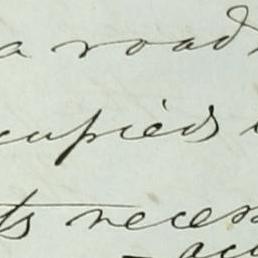 a road
cupied
ts neces